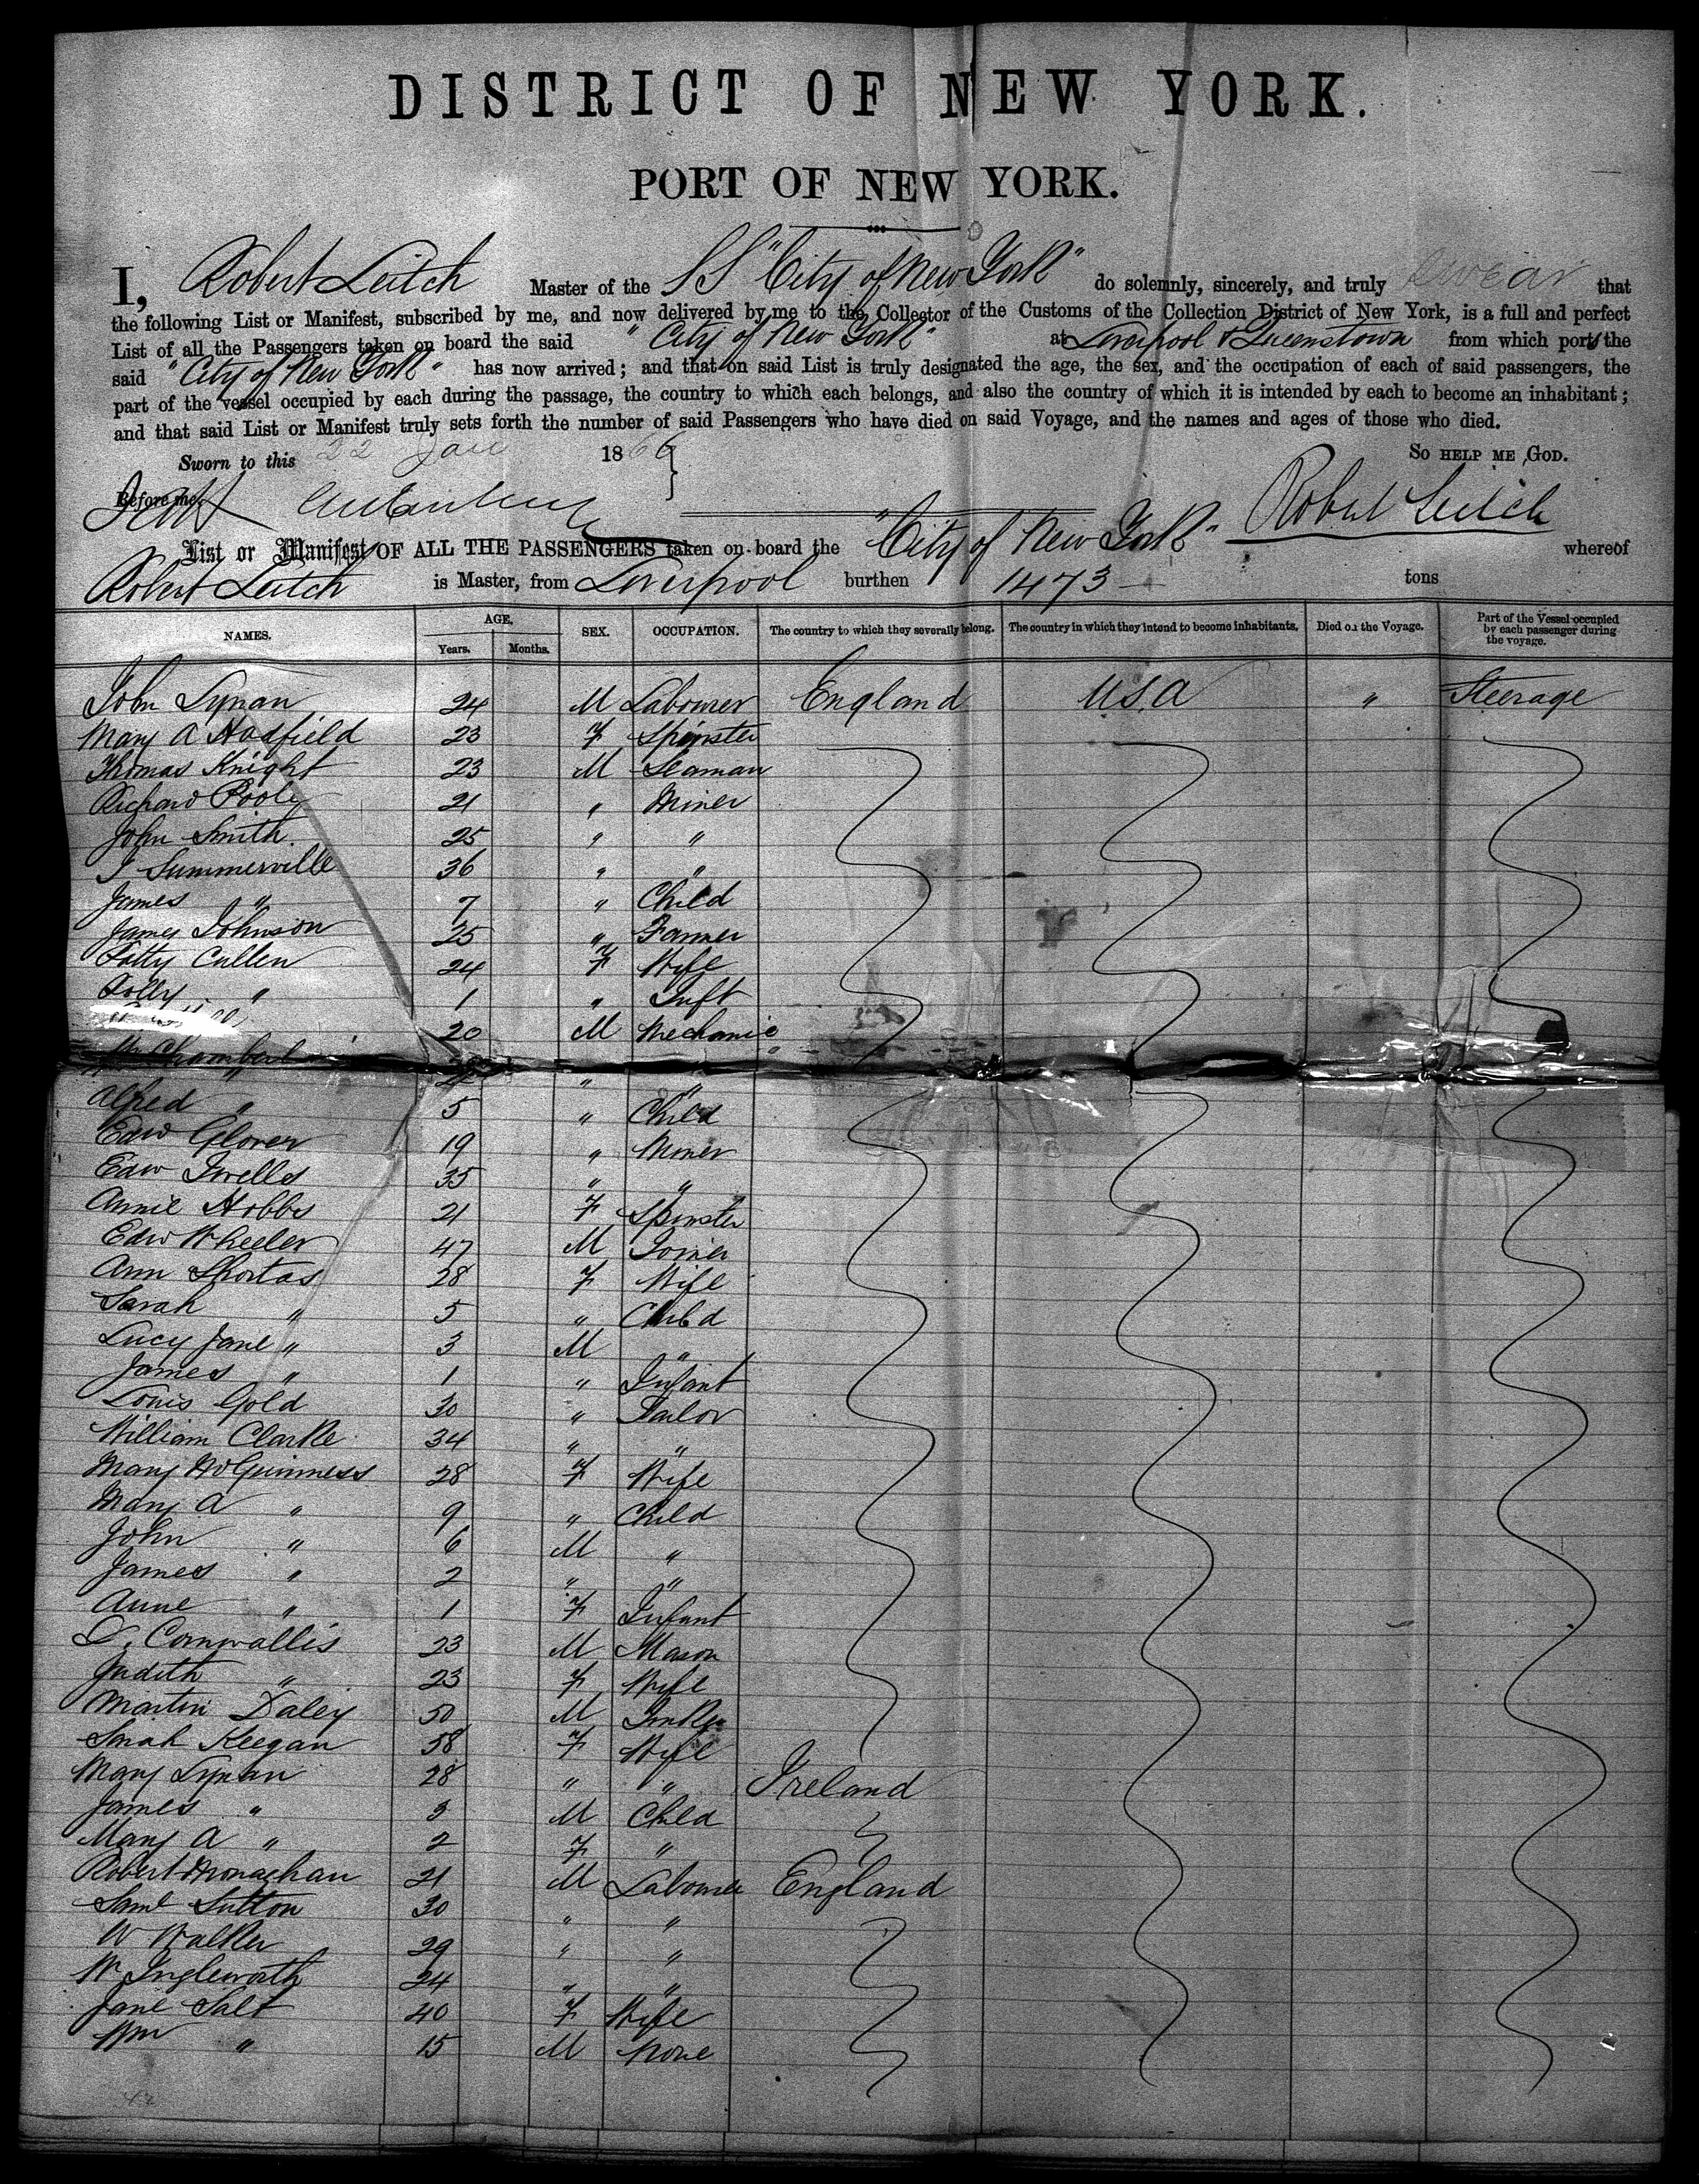 DISTRICT OF NEW YORK.
PORT OF NEW YORK.
I, Robert Leitch Master of the SS "City of New York" do solemnly, sincerely, and truly swear that
the following List or Manifest, subscribed by me, and now delivered by me to the Collector of the Customs of the Collection District of New York, is a full and perfect
List of all the Passengers taken on board the said "City of New York" at Liverpool & Queenstown from which ports the
said "City of New York" has now arrived; and that on said List is truly designated the age, the sex, and the occupation of each of said passengers, the
part of the vessel occupied by each during the passage, the country to which each belongs, and also the country of which it is intended by each to become an inhabitant;
and that said List or Manifest truly sets forth the number of said Passengers who have died on said Voyage, and the names and ages of those who died.
Sworn to this 22 Jan 1866 So HELP ME GOD.
Before me, Robert Leitch
List or Manifest OF ALL THE PASSENGERS taken on board the "City of New York" whereof
Robert Leitch is Master, from Liverpool burthen 1473 tons
NAMES. AGE. Years. Months. SEX. OCCUPATION. The country to which they severally belong. The country in which they intend to become inhabitants. Died on the Voyage. Part of the Vessel occupied by each passenger during the voyage.
John Lynan 24 M Labourer England USA " Steerage
Mary A Hadfield 23 F Spinster
Thomas Knight 23 M Seaman
Richard Pooly 21 " Miner
John Smith 25 " "
J Summerville 36 " "
James " 7 " Child
James Johnson 25 " Farmer
Patty Cullen 24 F Wife
Polly " 1 " Inft
20 M Mechanic
" " "
Alfred " 5 " Child
Edw Glover 19 " Miner
Edw Twells 35 " "
Annie Hobbs 21 F Spinster
Edw Wheeler 47 M Joiner
Ann Shortas 28 F Wife
Sarah " 5 " Child
Lucy Jane " 3 M "
James " 1 " Infant
Louis Gold 30 " Tailor
William Clarke 34 " "
Mary McGuinness 28 F Wife
Mary A " 9 " Child
John " 6 M "
James " 2 " "
Anne " 1 F Infant
D. Cornwallis 23 M Mason
Judith " 23 F Wife
Martin Daley 50 M
Sarah Keegan 58 F Wife
Mary Lynan 28 " " Ireland
James " 3 M Child
Mary A " 2 F "
Robert Monaghan 21 M Labourer England
Saml Sutton 30 " "
W Walker 29 " "
W Ingleworth 24 " "
Jane Salt 40 F Wife
Wm " 15 M None